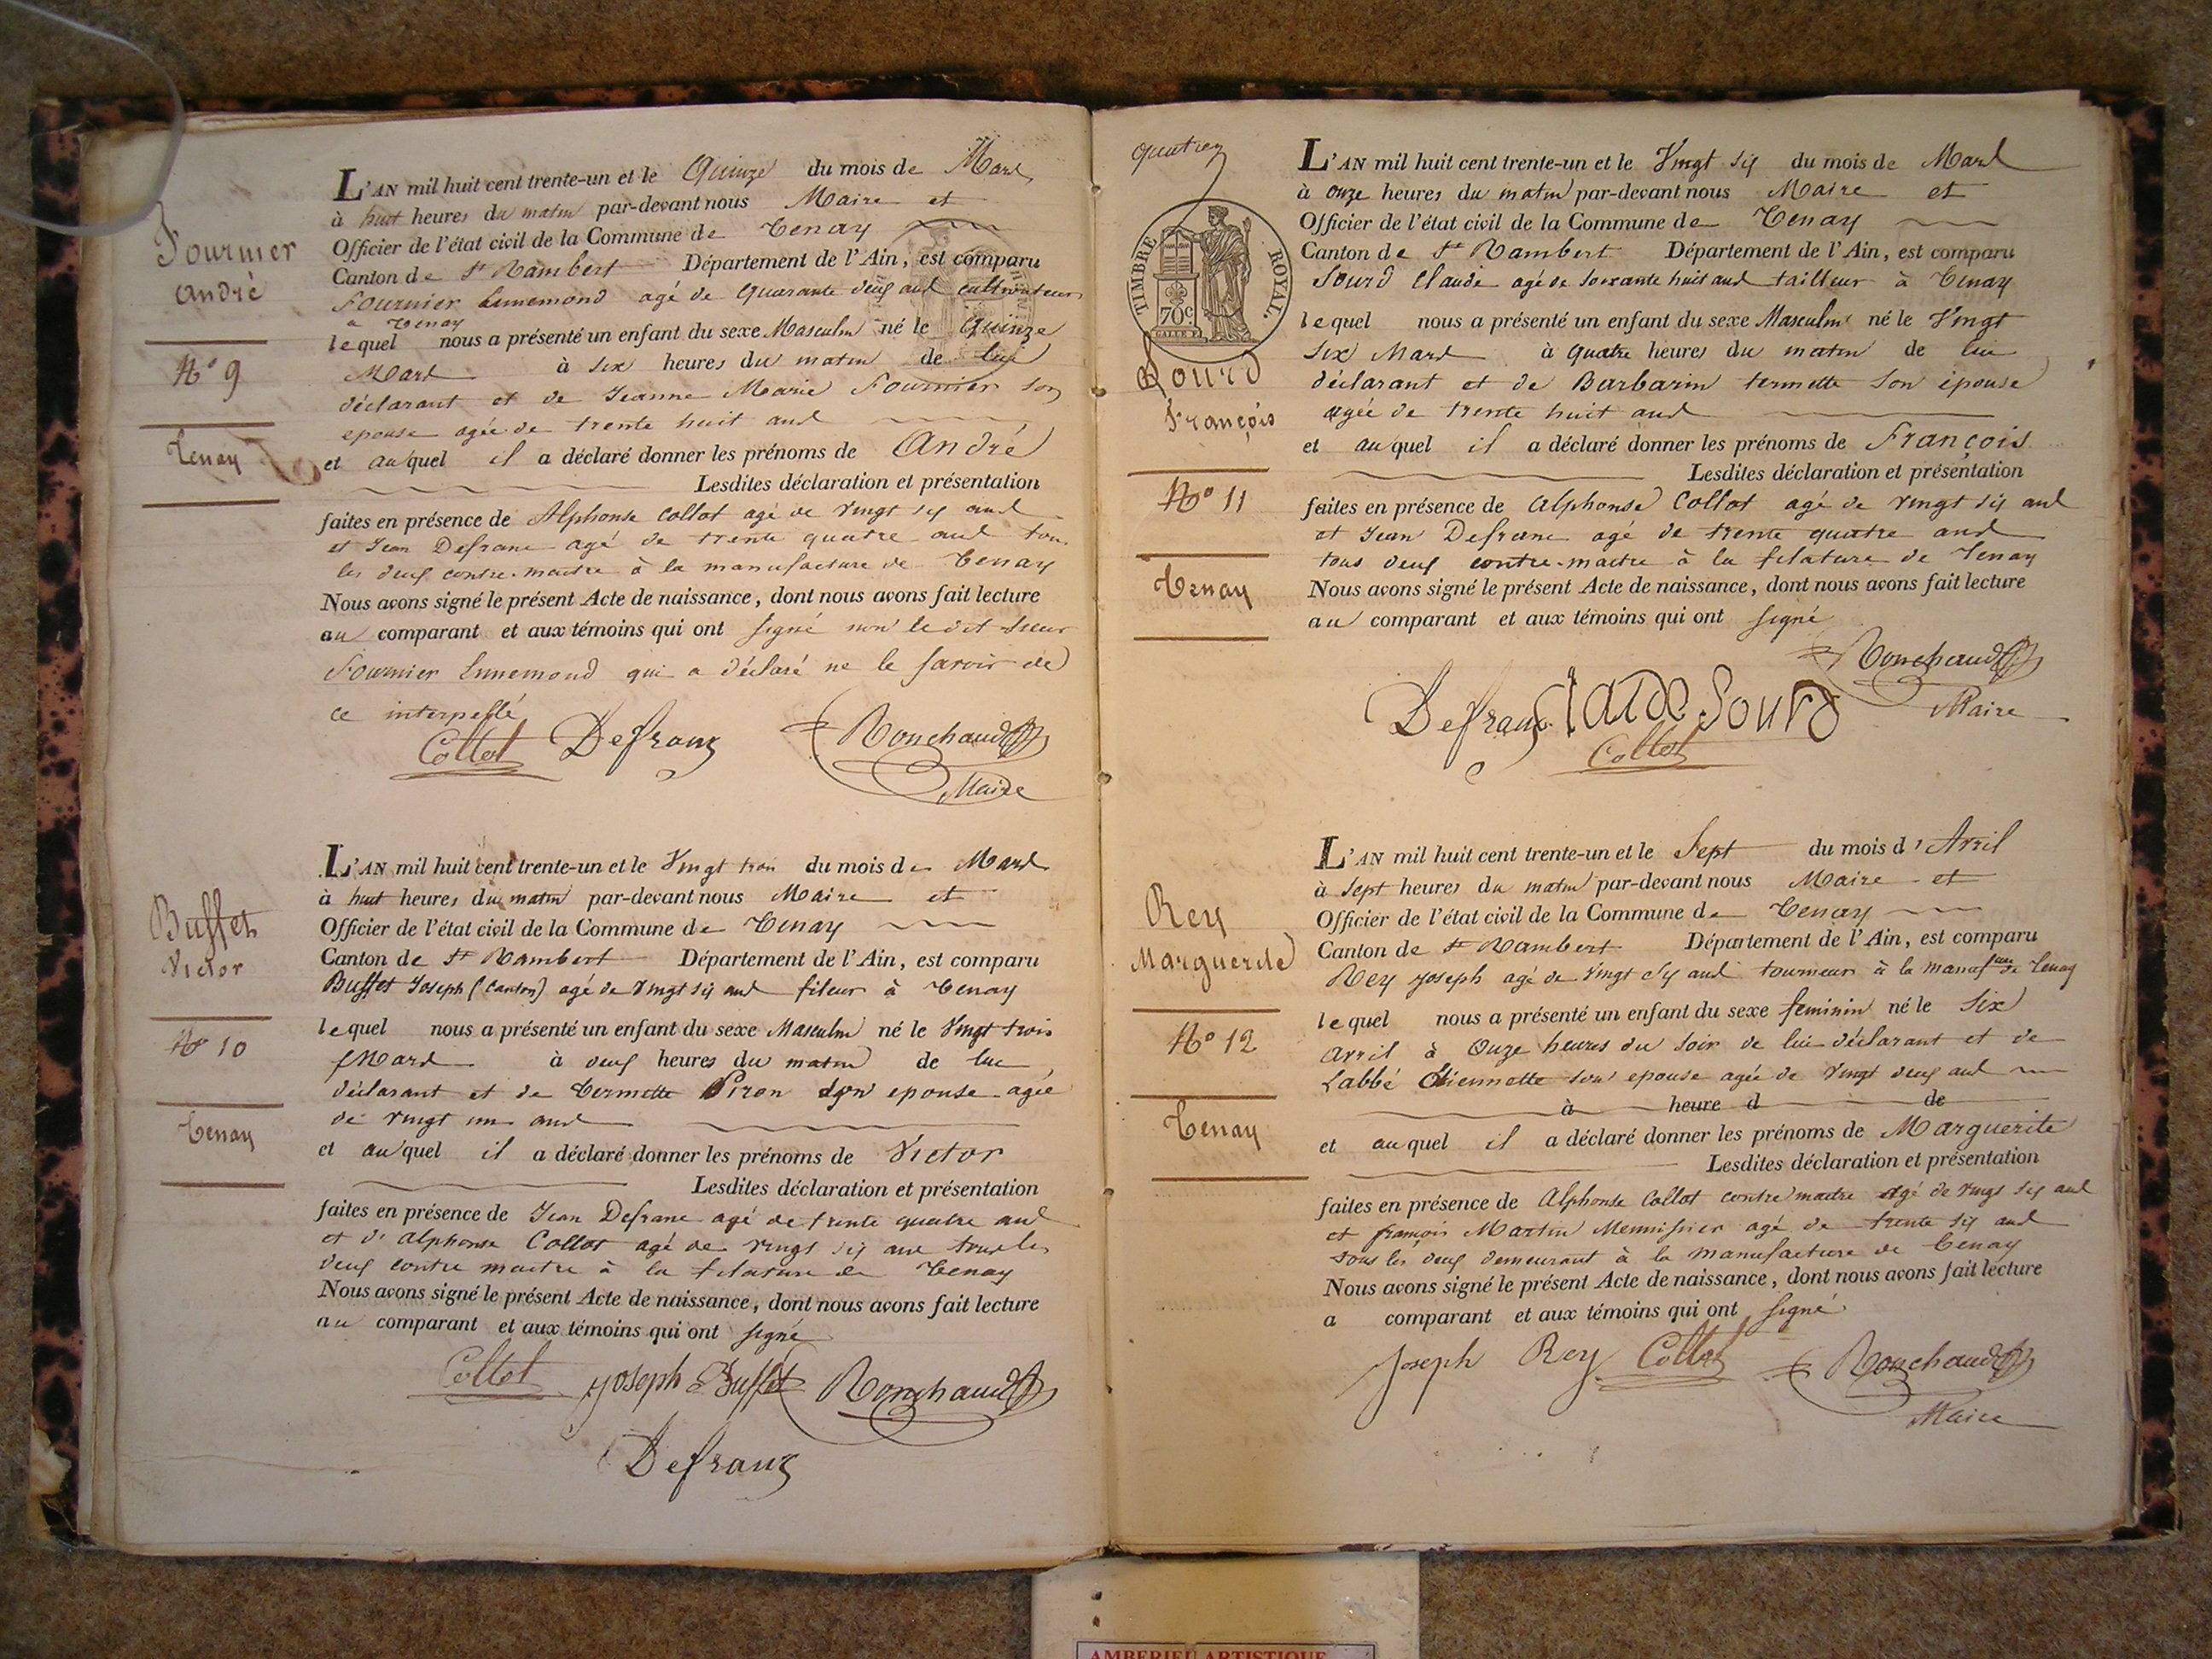 Fournier
André
N° 9
Tenay
L'AN mil huit cent trente-un et le Quinze du mois de Mars
à huit heures du matin par-devant nous Maire et
Officier de l'état civil de la Commune de Tenay
Canton de St Rambert Département de l'Ain, est comparu
Fournier Ennemond agé de Quarante deux ans cultivateur
a Tenay
lequel nous a présenté un enfant du sexe Masculin né le Quinze
Mars à six heures du matin de lui
déclarant et de Jeanne Marie Fournier son
epouse agée de trente huit ans
et auquel il a déclaré donner les prénoms de André
Lesdites déclaration et présentation
faites en présence de Alphonse Collot agé de vingt six ans
et Jean Defranc agé de trente quatre ans tous
les deux contre-maitre à la manufacture de Tenay
Nous avons signé le présent Acte de naissance, dont nous avons fait lecture
au comparant et aux témoins qui ont signé non le dit sieur
Fournier Ennemond qui a déclaré ne le savoir de
ce interpellé
Collot Defranc Ronchaud
Maire
Buffet
Victor
N° 10
Tenay
L'AN mil huit cent trente-un et le Vingt trois du mois de Mars
à huit heures du matin par-devant nous Maire et
Officier de l'état civil de la Commune de Tenay
Canton de St Rambert Département de l'Ain, est comparu
Buffet Joseph (Canton) agé de Vingt six ans fileur à Tenay
lequel nous a présenté un enfant du sexe Masculin né le Vingt trois
Mars à deux heures du matin de lui
déclarant et de Termette Piron son epouse agée
de vingt un ans
et auquel il a déclaré donner les prénoms de Victor
Lesdites déclaration et présentation
faites en présence de Jean Defranc agé de trente quatre ans
et d'alphonse Collot agé de vingt six ans tous les
deux contre maitre à la filature de Tenay
Nous avons signé le présent Acte de naissance, dont nous avons fait lecture
au comparant et aux témoins qui ont signé
Collot Joseph Buffet Ronchaud
Defranc
TIMBRE ROYAL.
70c
Sourd
François
N° 11
Tenay
L'AN mil huit cent trente-un et le Vingt six du mois de Mars
à onze heures du matin par-devant nous Maire et
Officier de l'état civil de la Commune de Tenay
Canton de St Rambert Département de l'Ain, est comparu
Sourd Claude agé de soixante huit ans tailleur à Tenay
lequel nous a présenté un enfant du sexe Masculin né le Vingt
six Mars à quatre heures du matin de lui
déclarant et de Barbarin termette son épouse
agée de trente huit ans
et auquel il a déclaré donner les prénoms de François
Lesdites déclaration et présentation
faites en présence de alphonse Collot agé de vingt six ans
et Jean Defranc agé de trente quatre ans
tous deux contre-maitre à la filature de Tenay
Nous avons signé le présent Acte de naissance, dont nous avons fait lecture
au comparant et aux témoins qui ont signé
Ronchaud
Defranc Claude Sourd Maire
Collot
Rey
Marguerite
N° 12
Tenay
L'AN mil huit cent trente-un et le Sept du mois d'Avril
à sept heures du matin par-devant nous Maire et
Officier de l'état civil de la Commune de Tenay
Canton de St Rambert Département de l'Ain, est comparu
Rey joseph agé de vingt six ans tourneur à la manufure de Tenay
lequel nous a présenté un enfant du sexe feminin né le Six
avril à Onze heures du soir de lui déclarant et de
Labbé Etiennette son epouse agée de vingt deux ans
à heure d de
et auquel il a déclaré donner les prénoms de Marguerite
Lesdites déclaration et présentation
faites en présence de Alphonse Collot contre maitre agé de vingt six ans
et françois Martin agé de trente six ans
tous les deux demeurant à la manufacture de Tenay
Nous avons signé le présent Acte de naissance, dont nous avons fait lecture
a comparant et aux témoins qui ont signé
Joseph Rey Collot Ronchaud
Maire
AMBERIEU ARTISTIQUE